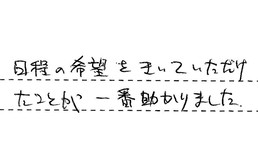 日程の希望をきいていただけ
たことが一番助かりました.